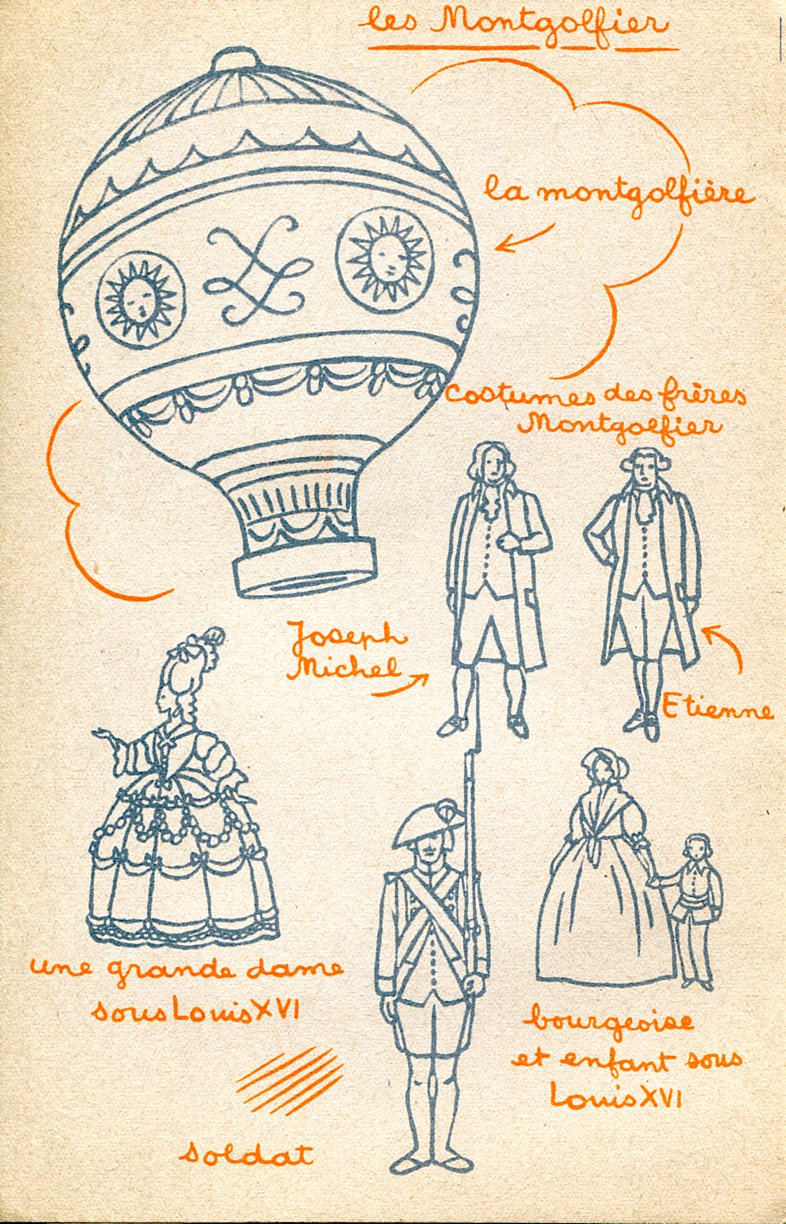 les Montgolfier
la montgolfière
costumes des frères
Montgolfier
Joseph
Michel
Etienne
une grande dame
sous Louis XVI
bourgeoise
et enfant sous
Louis XVI
soldat